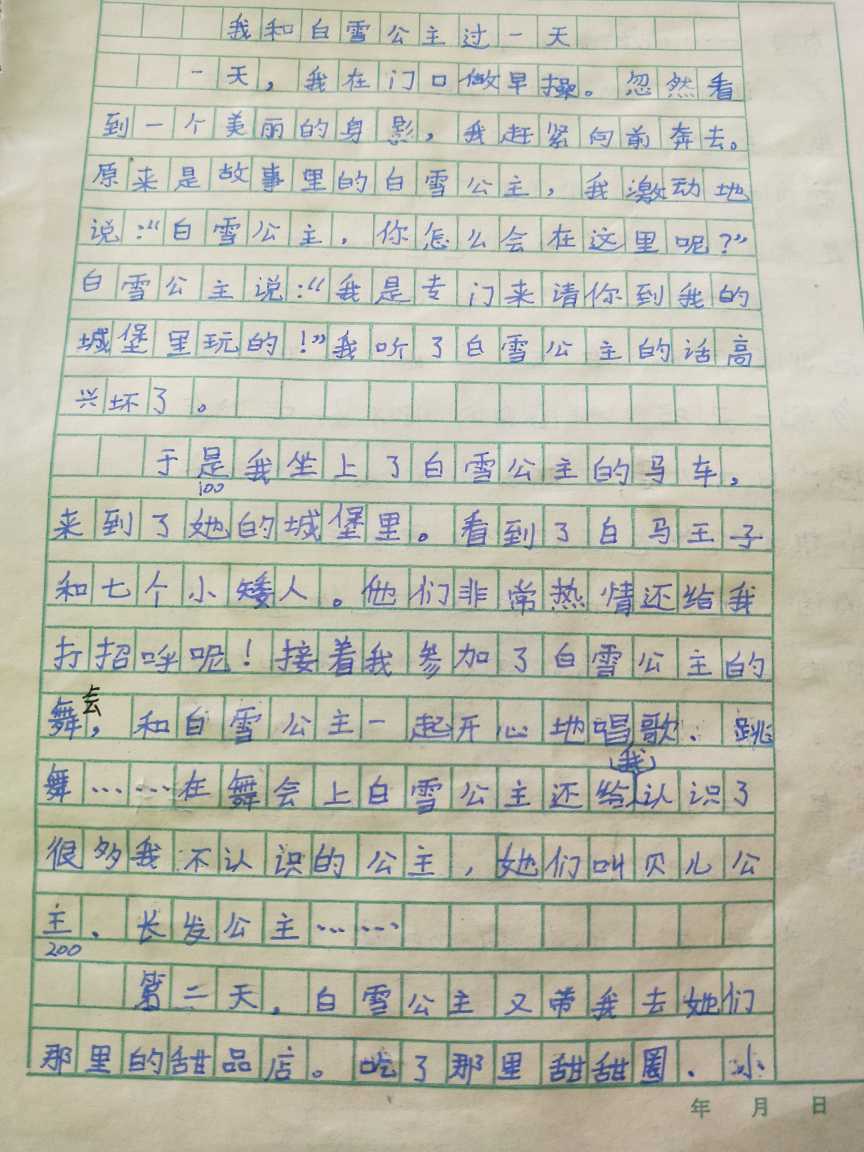 我和白雪公主过一天
一天，我在门口做早操。忽然看
到一个美丽的身影，我赶紧向前奔去。
原来是故事里的白雪公主，我激动地
说：“白雪公主，你怎么会在这里呢？”
白雪公主说：“我是专门来请你到我的
城堡里玩的！”我听了白雪公主的话高
兴坏了。
于是我坐上了白雪公主的马车，
100
来到了她的城堡里。看到了白马王子
和七个小矮人。他们非常热情还给我
打招呼呢！接着我参加了白雪公主的
舞会，和白雪公主一起开心地唱歌、跳
舞……在舞会上白雪公主还给我认识了
很多我不认识的公主，她们叫贝儿公
主、长发公主……
200
第二天，白雪公主又带我去她们
那里的甜品店。吃了那里甜甜圈、冰
年 月 日